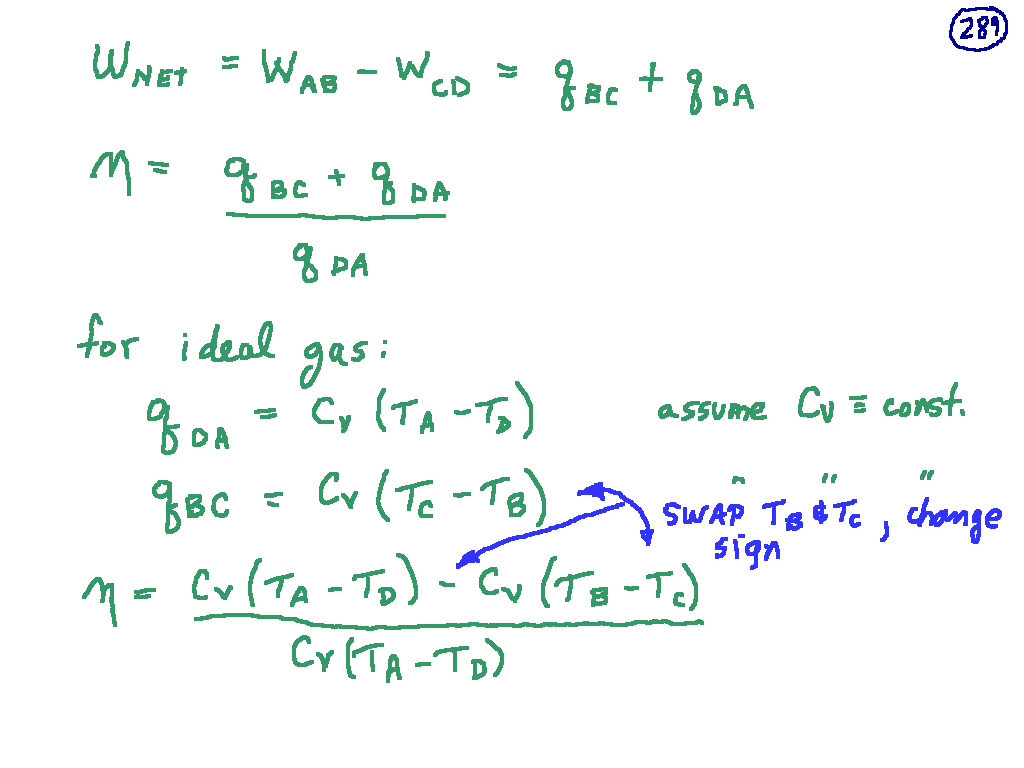 289
W_NET = W_AB - W_CD = q_BC + q_DA
η = (q_BC + q_DA) / q_DA
for ideal gas:
q_DA = C_v (T_A - T_D) assume C_v = const.
q_BC = C_v (T_C - T_B) " " "
SWAP T_B & T_C, change
sign
η = (C_v (T_A - T_D) - C_v (T_B - T_C)) / (C_v (T_A - T_D))